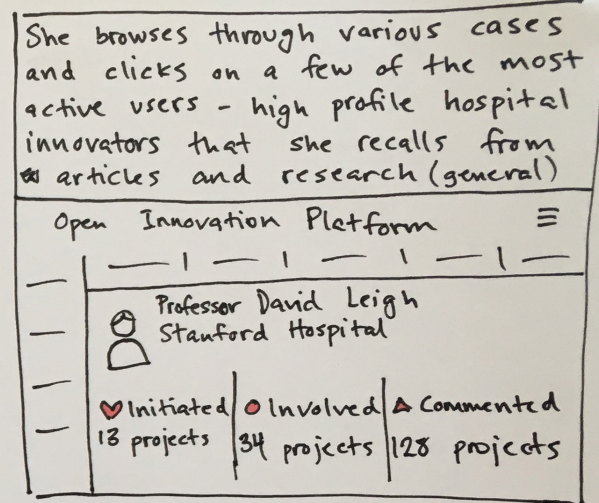 She browses through various cases
and clicks on a few of the most
active users - high profile hospital
innovators that she recalls from
articles and research (general)
Open Innovation Platform
Professor David Leigh
Stanford Hospital
Initiated
13 projects
Involved
34 projects
Commented
128 projects